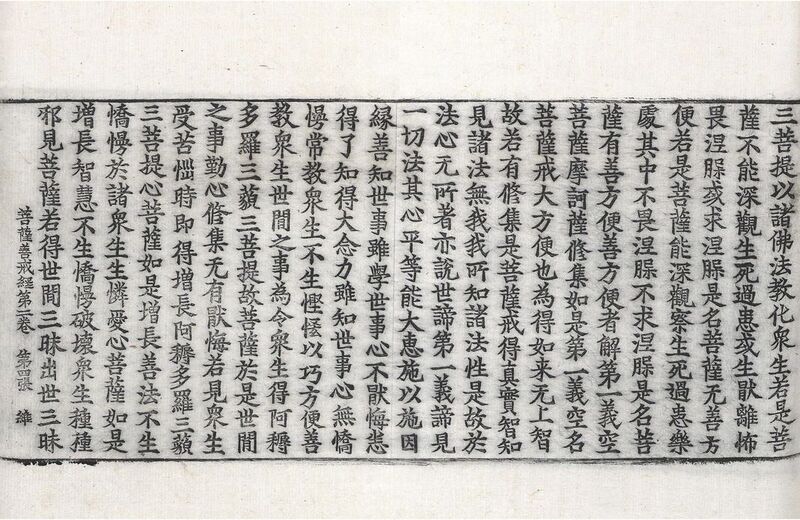 三菩提以諸佛法教化衆生若是菩
薩不能深觀生死過患或生猒離怖
畏涅槃或求涅槃是名菩薩无善方
便若是菩薩能深觀察生死過患樂
處其中不畏涅槃不求涅槃是名菩
薩有善方便善方便者解第一義空
菩薩摩訶薩修集如是第一義空名
菩薩戒大方便也為得如来无上智
故若有修集是菩薩戒得真實智知
見諸法無我我所知諸法性是故於
法心无所著亦説世諦第一義諦見
一切法其心平等能大恵施以施因
縁善知世事雖學世事心不猒悔悲
得了知得大念力雖知世事心無憍
慢常教衆生不生慳悋以巧方便善
教衆生世間之事為令衆生得阿耨
多羅三藐三菩提故菩薩於是世間
之事勤心修集无有猒悔若見衆生
受苦惱時即得増長阿耨多羅三藐
三菩提心菩薩如是増長善法不生
憍慢於諸衆生生憐愛心菩薩如是
増長智慧不生憍慢破壞衆生種種
邪見菩薩若得世間三昧出世三昧
菩薩善戒經第二卷 第四張 維